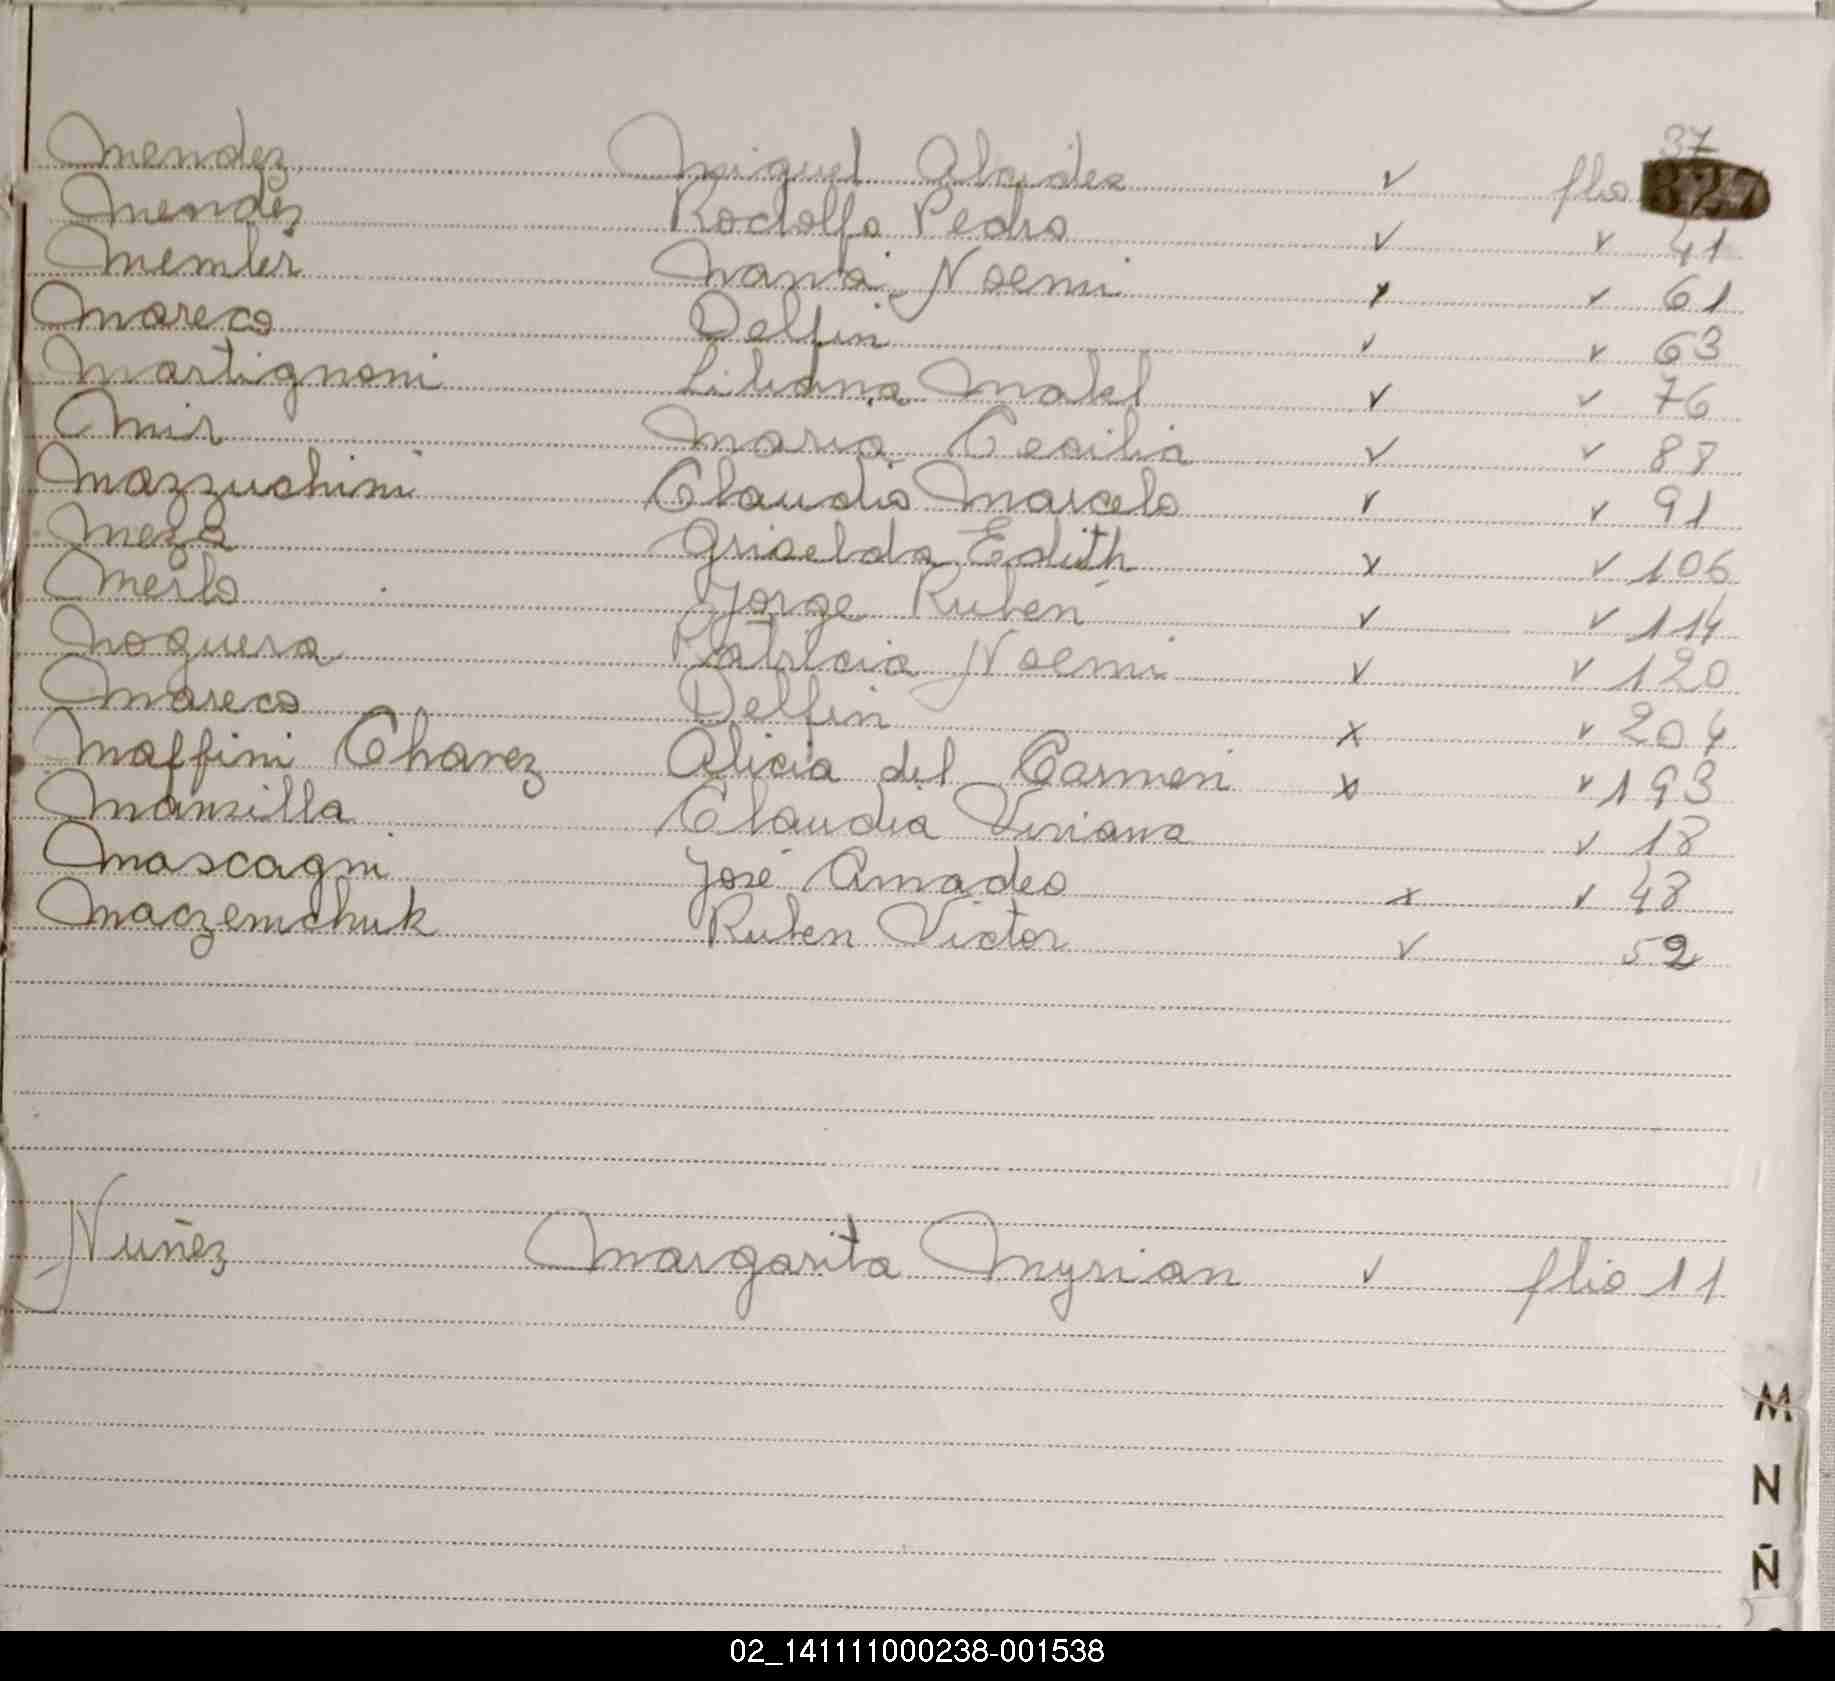 37
Mendez Miguel Alcides v flio 327
Mendez Rodolfo Pedro v v 41
Memler Maria Noemi x v 61
Mareco Delfin v v 63
Martignoni Liliana Mabel v v 76
Mir Maria Cecilia v v 88
Mazzuchini Claudio Marcelo v v 91
Meza Griselda Edith x v 106
Merlo Jorge Ruben v v 114
Noguera Patricia Noemi v v 120
Mareco Delfin x v 204
Maffini Chavez Alicia del Carmen x v 193
Mansilla Claudia Viviana v 18
Mascagni José Amadeo x v 48
Maczemchuk Ruben Victor v 52
Nuñez Margarita Myrian v flio 11
M
N
Ñ
02_141111000238-001538